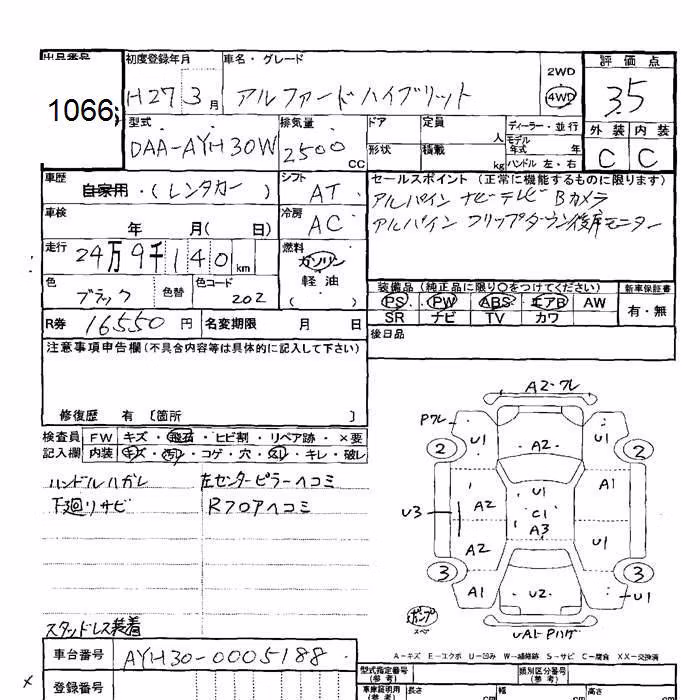 出品番号 初度登録年月 車名・グレード 評価点
1066 H27 3月 アルファードハイブリット 2WD 4WD 3.5
型式 排気量 ドア 定員 人 ディーラー・並行 外装 内装
DAA-AYH30W 2500 CC 形状 積載 kg モデル年式 年 ハンドル 左・右 C C
車歴 自家用・(レンタカー) シフト AT セールスポイント (正常に機能するものに限ります)
アルパイン ナビテレビ Bカメラ
車検 年 月( 日) 冷房 AC アルパイン フリップダウン後席モニター
走行 24万9千140km 燃料 ガソリン 軽油 ( )
色 ブラック 色替 色コード 202
装備品(純正品に限り○をつけてください) 新車保証書
PS PW ABS エアB AW 有・無
SR ナビ TV カワ
R券 16550円 名変期限 月 日 後日品
注意事項申告欄(不具合内容等は具体的に記入して下さい)
修復歴 有 [箇所 ]
検査員 FW キズ・飛石・ヒビ割・リペア跡・×要
記入欄 内装 キズ・汚レ・コゲ・穴・スレ・キレ・破レ
ハンドルハガレ 左センターピラーヘコミ
下廻リサビ Rフロアヘコミ
スタッドレス装着
A2・フレ
Pフレ U1 A2 U1
2 2
A2 U1 A1
U3 C1
A3
A2 U1
3 3
A1 U2 U1
ポンプ スペ UA1・Pハゲ
A-キズ E-エクボ U-凹み W-補修跡 S-サビ C-腐食 XX-交換済
車台番号 AYH30-0005188 型式指定番号 類別区分番号
登録番号 車庫証明用(参考) 長さ cm 幅 cm 高さ cm